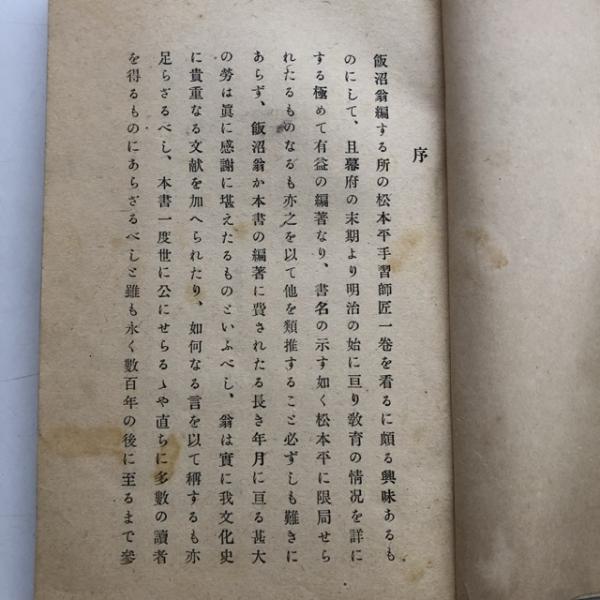 序
飯沼翁編する所の松本平手習師匠一卷を看るに頗る興味あるも
のにして、且幕府の末期より明治の始に亘り敎育の情况を詳に
する極めて有益の編著なり、書名の示す如く松本平に限局せら
れたるものなるも亦之を以て他を類推すること必ずしも難きに
あらず、飯沼翁か本書の編著に費されたる長き年月に亘る甚大
の勞は眞に感謝に堪えたるものといふべし、翁は實に我文化史
に貴重なる文献を加へられたり、如何なる言を以て稱するも亦
足らざるべし、本書一度世に公にせらるゝや直ちに多數の讀者
を得るものにあらざるべしと雖も永く數百年の後に至るまで參